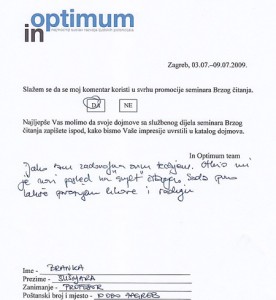 in optimum
Zagreb, 03.07.-09.07.2009.
Slažem se da se moj komentar koristi u svrhu promocije seminara Brzog čitanja.
DA NE
Najljepše Vas molimo da svoje dojmove sa službenog dijela seminara Brzog
čitanja zapišete ispod, kako bismo Vaše impresije uvrstili u katalog dojmova.
In Optimum team
Jako sam zadovoljna ovim tečajem. Otkrio mi
je novi pogled na svijet čitanja. Sada puno
lakše likove i radnju
Ime - BRANKA
Prezime -
Zanimanje - PROFESOR
Poštanski broj i mjesto - 10000 ZAGREB